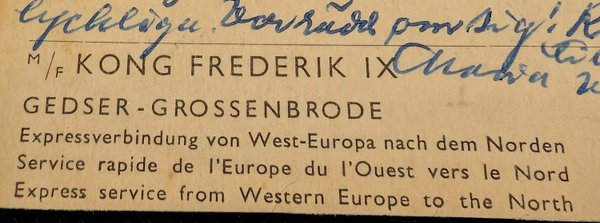 lyckliga. Var rädd om Sig!
M/F KONG FREDERIK IX
GEDSER - GROSSENBRODE
Expressverbindung von West-Europa nach dem Norden
Service rapide de l'Europe du l'Ouest vers le Nord
Express service from Western Europe to the North